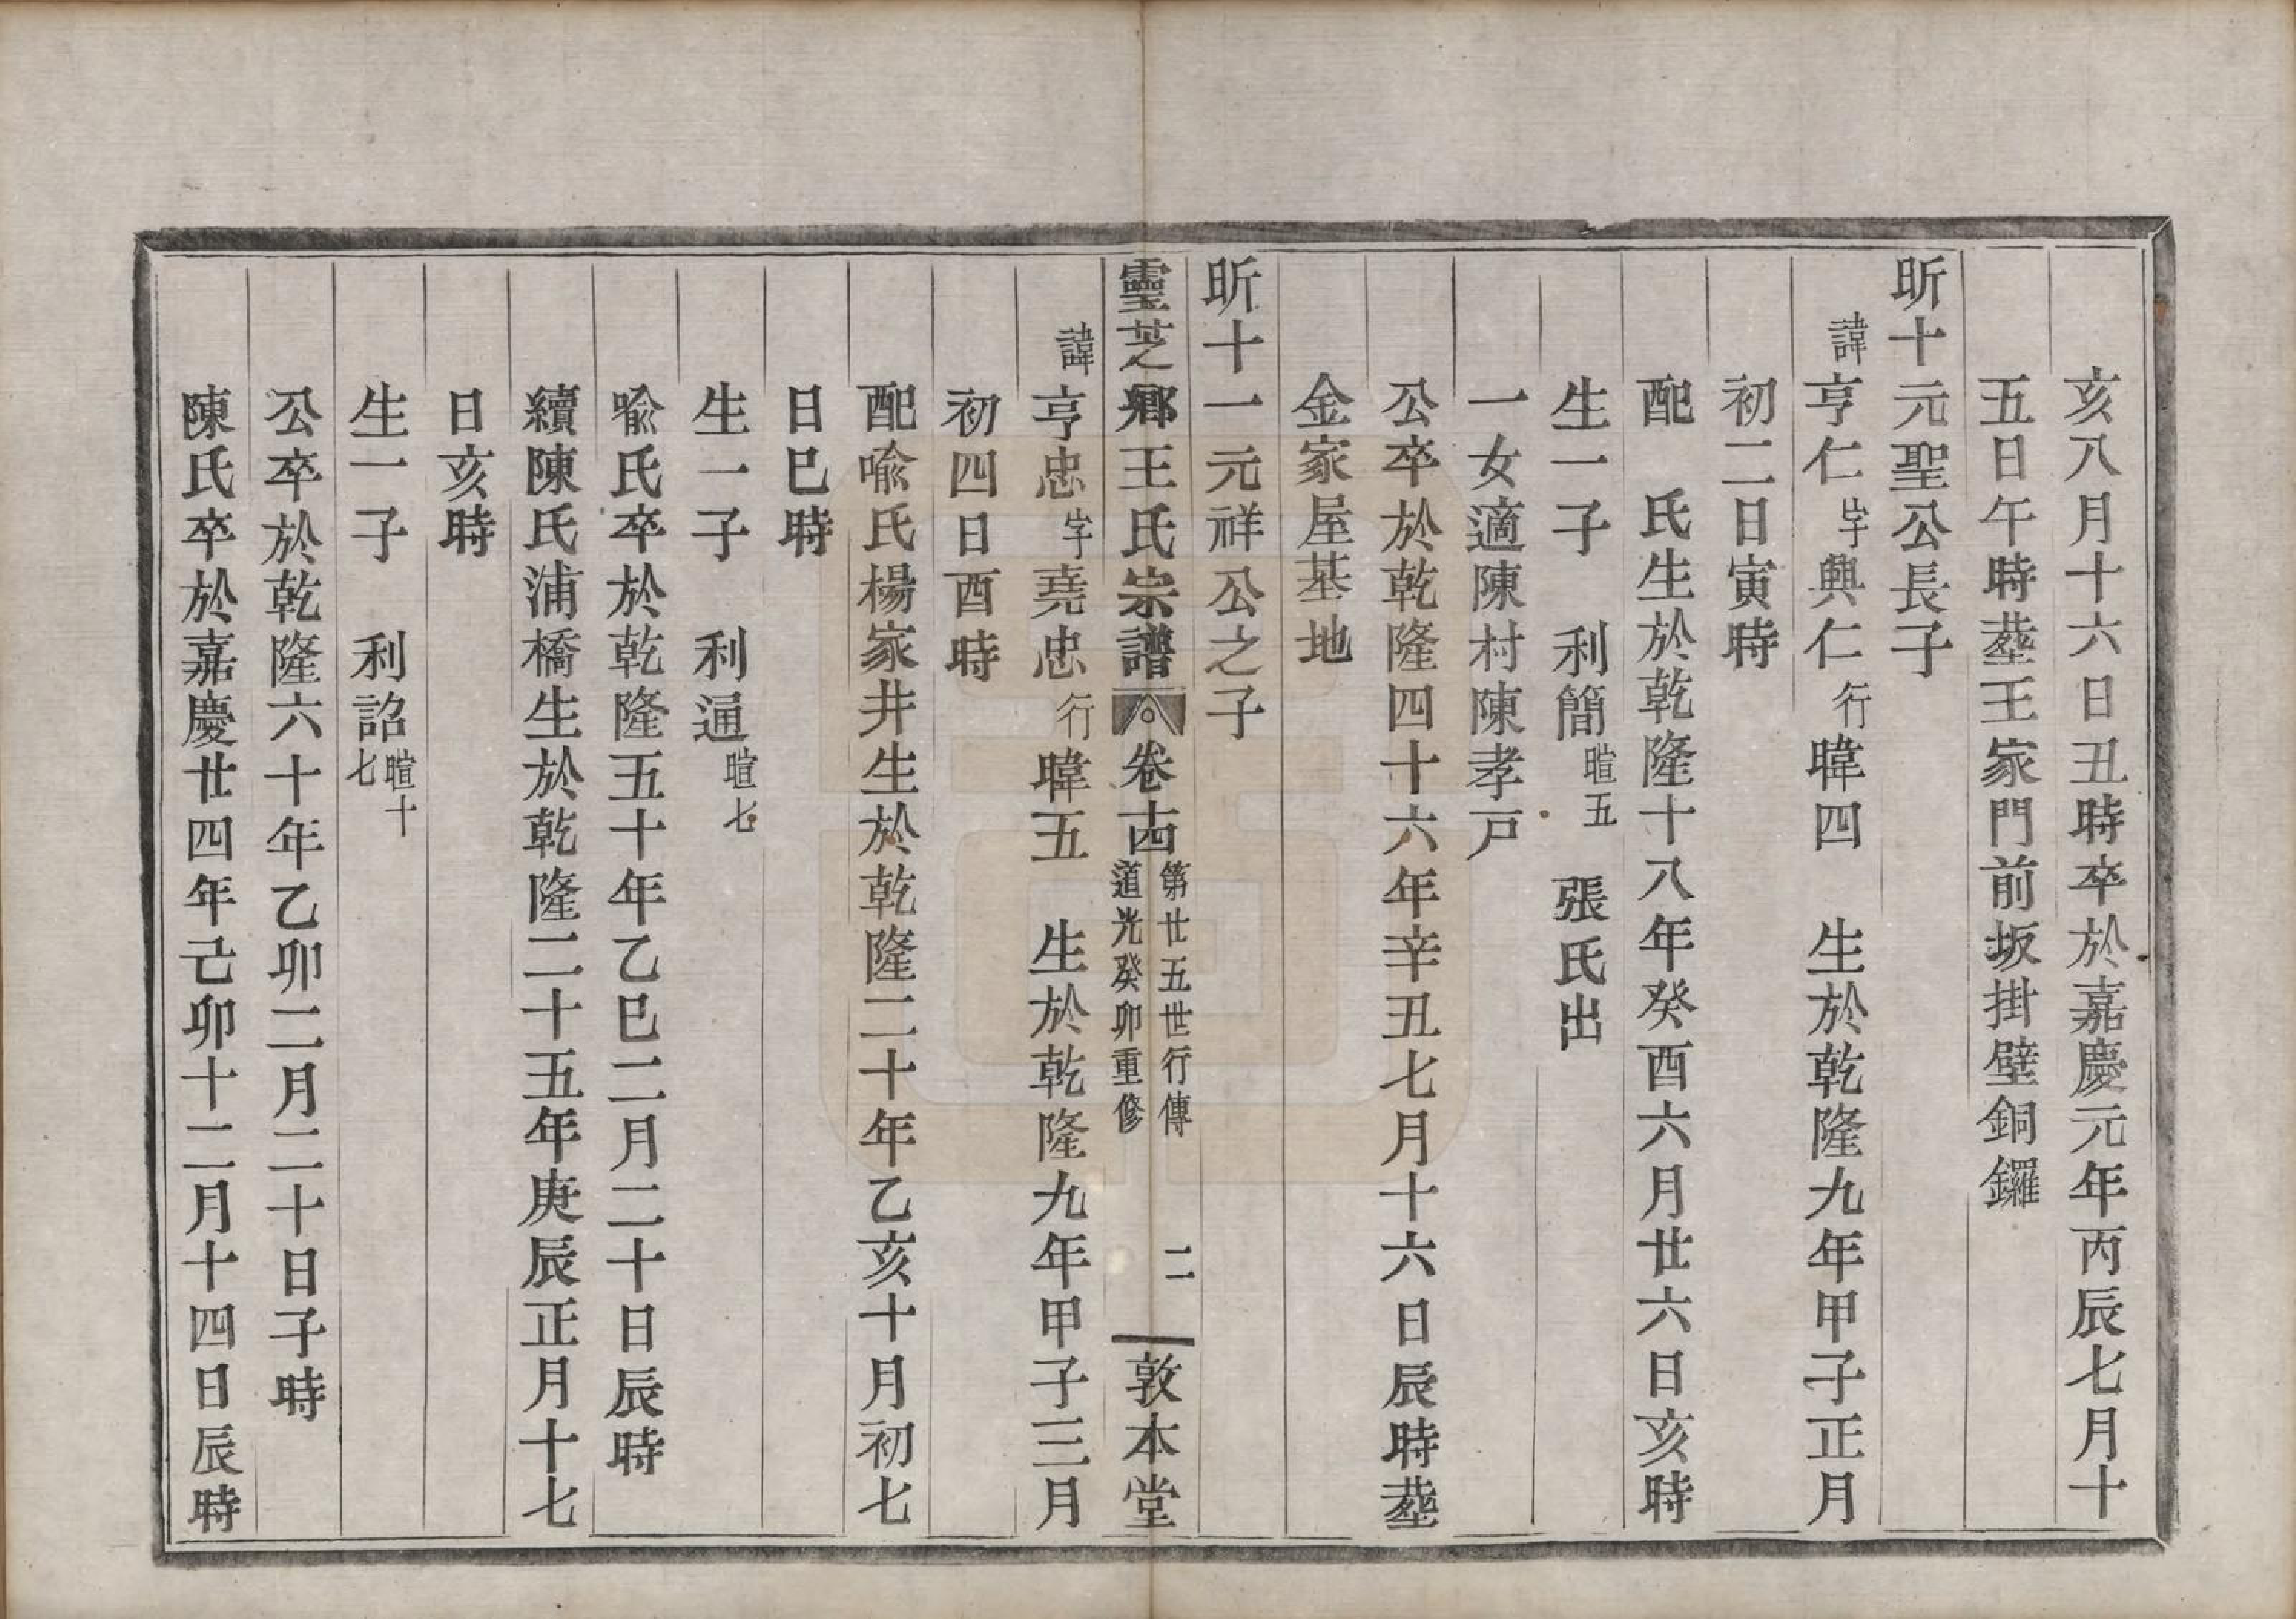 亥八月十六日丑時卒於嘉慶元年丙辰七月十
五日午時塟王家門前坂掛壁銅鑼
昕十元聖公長子
諱亨仁字興仁行暐四 生於乾隆九年甲子正月
初二日寅時
配 氏生於乾隆十八年癸酉六月廿六日亥時
生一子 利簡暄五 張氏出
一女適陳村陳孝戸
公卒於乾隆四十六年辛丑七月十六日辰時塟
金家屋基地
昕十一元祥公之子
靈芝鄉王氏宗譜 卷十四 第廿五世行傳 道光癸卯重修 二 敦本堂
諱亨忠字堯忠行暐五 生於乾隆九年甲子三月
初四日酉時
配喻氏楊家井生於乾隆二十年乙亥十月初七
日巳時
生一子 利通暄七
喻氏卒於乾隆五十年乙巳二月二十日辰時
續陳氏浦橋生於乾隆二十五年庚辰正月十七
日亥時
生一子 利詔暄十七
公卒於乾隆六十年乙卯二月二十日子時
陳氏卒於嘉慶廿四年己卯十二月十四日辰時